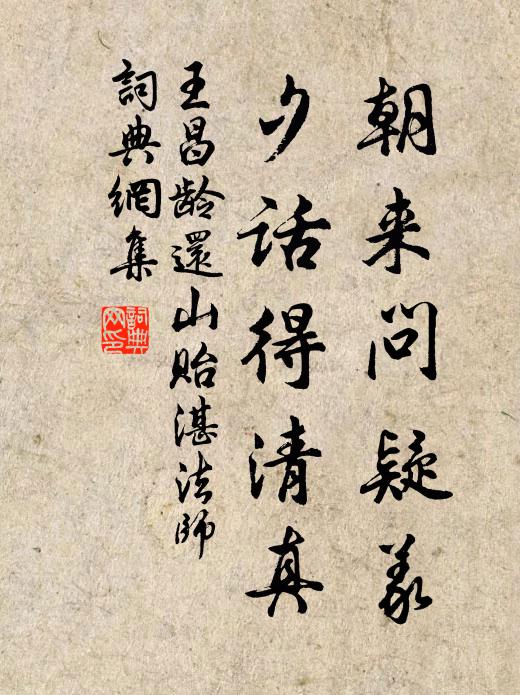 朝来问疑义
夕话得清真
王昌龄還山貽湛法師
詞典網集
詞典
网印